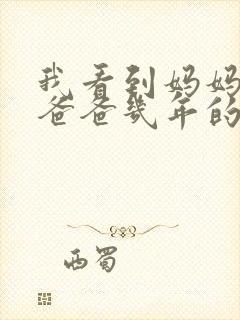 我看到妈妈
爸爸几年的
西蜀